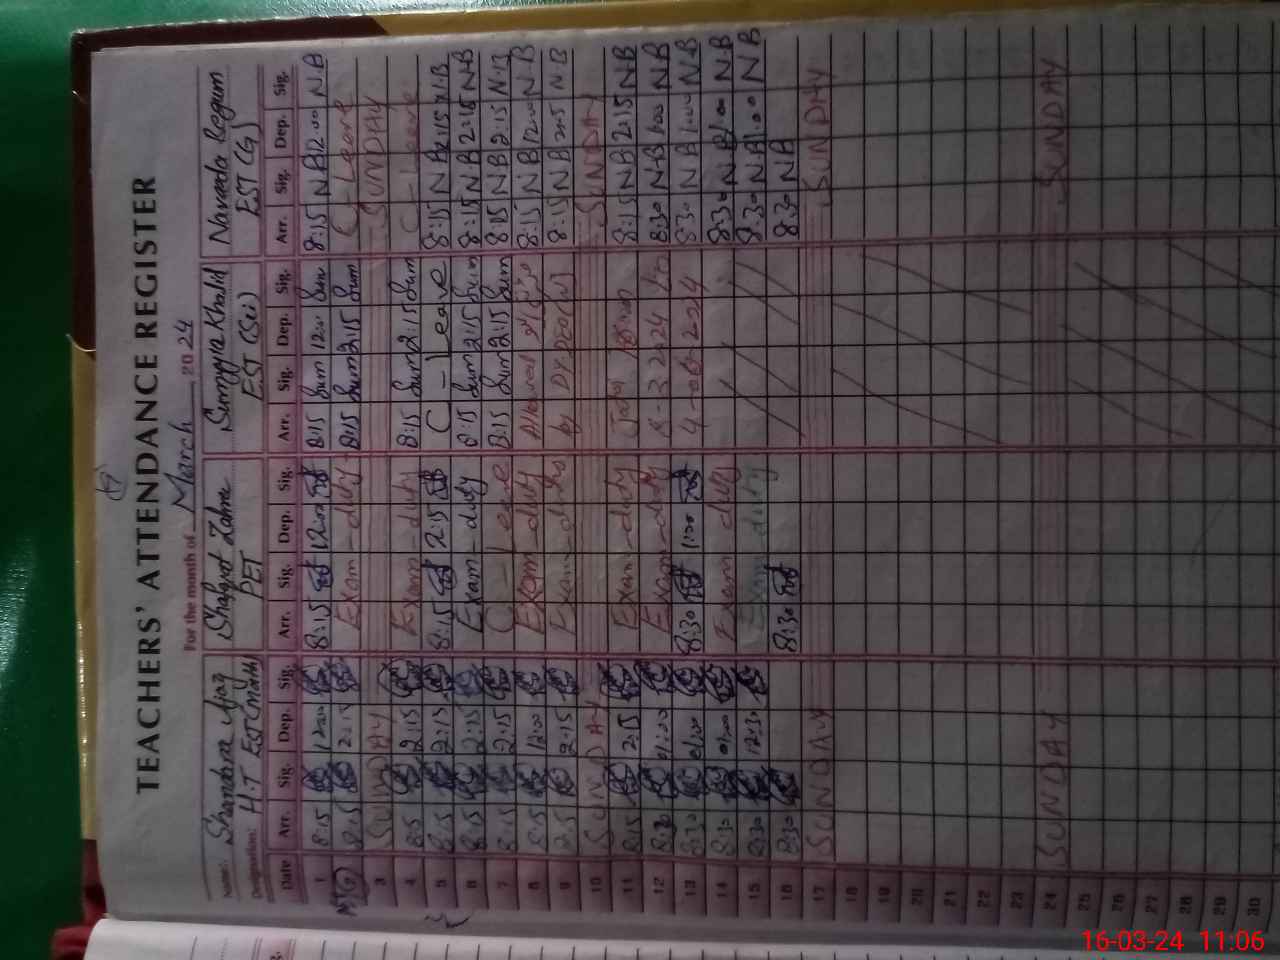 TEACHERS' ATTENDANCE REGISTER
For the month of March 2024
Name: Shandana Ijaz Shagufta Zahra Sumyyia Khalid Naveeda Begum
Designation: H.T EST (Math) PET EST (Sci) EST (G)
Date Arr. Sig. Dep. Sig. Arr. Sig. Dep. Sig. Arr. Sig. Dep. Sig. Arr. Sig. Dep. Sig.
1 8:15 12:00 8:15 12:00 8:15 Sum 12:00 Sum 8:15 N.B 12:00 N.B
2 8:15 2:15 Exam-duty 8:15 Sum 2:15 Sum C-Leave
3 SUNDAY SUNDAY
4 8:15 2:15 Exam-duty 8:15 Sum 2:15 Sum C-Leave
5 8:15 2:15 8:15 2:15 C-Leave 8:15 N.B 2:15 N.B
6 8:15 2:15 Exam-duty 8:15 Sum 2:15 Sum 8:15 N.B 2:15 N.B
7 8:15 2:15 C-Leave 8:15 Sum 2:15 Sum 8:15 N.B 2:15 N.B
8 8:15 12:00 Exam-duty 8:15 N.B 12:00 N.B
9 8:15 2:15 Exam-duty by DY.DEO(W) 8:15 N.B 2:15 N.B
10 SUNDAY SUNDAY
11 8:15 2:15 Exam-duty 8:15 N.B 2:15 N.B
12 8:30 01:00 Exam-duty 8-3-2024 to 8:30 N.B 1:00 N.B
13 8:30 01:00 8:30 1:00 4-06-2024 8:30 N.B 1:00 N.B
14 8:30 01:00 Exam duty 8:30 N.B 1:00 N.B
15 8:30 12:30 Exam duty 8:30 N.B 1:00 N.B
16 8:30 8:30 8:30 N.B
17 SUNDAY SUNDAY
18
19
20
21
22
23
24 SUNDAY SUNDAY
25
26
27
28
29
30
16-03-24 11:06